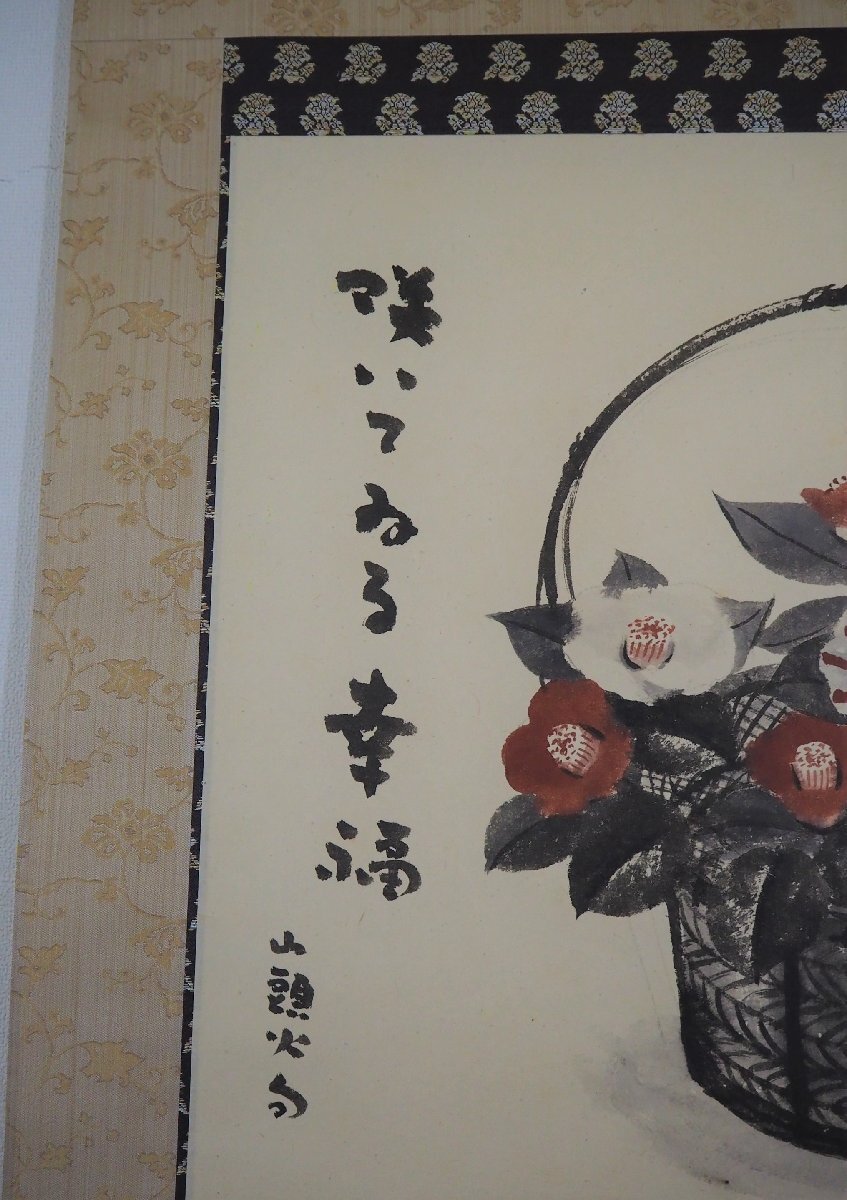 咲いてゐる幸福
山頭火句